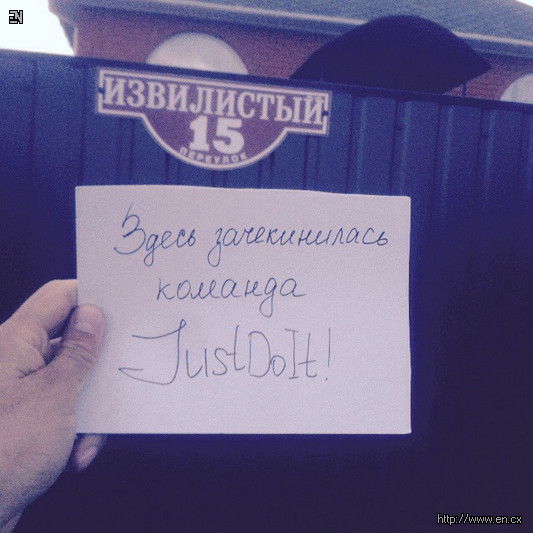 EN
ИЗВИЛИСТЫЙ
15
ПЕРЕУЛОК
Здесь зачекинилась
команда
JustDoIt!
http://www.en.cx